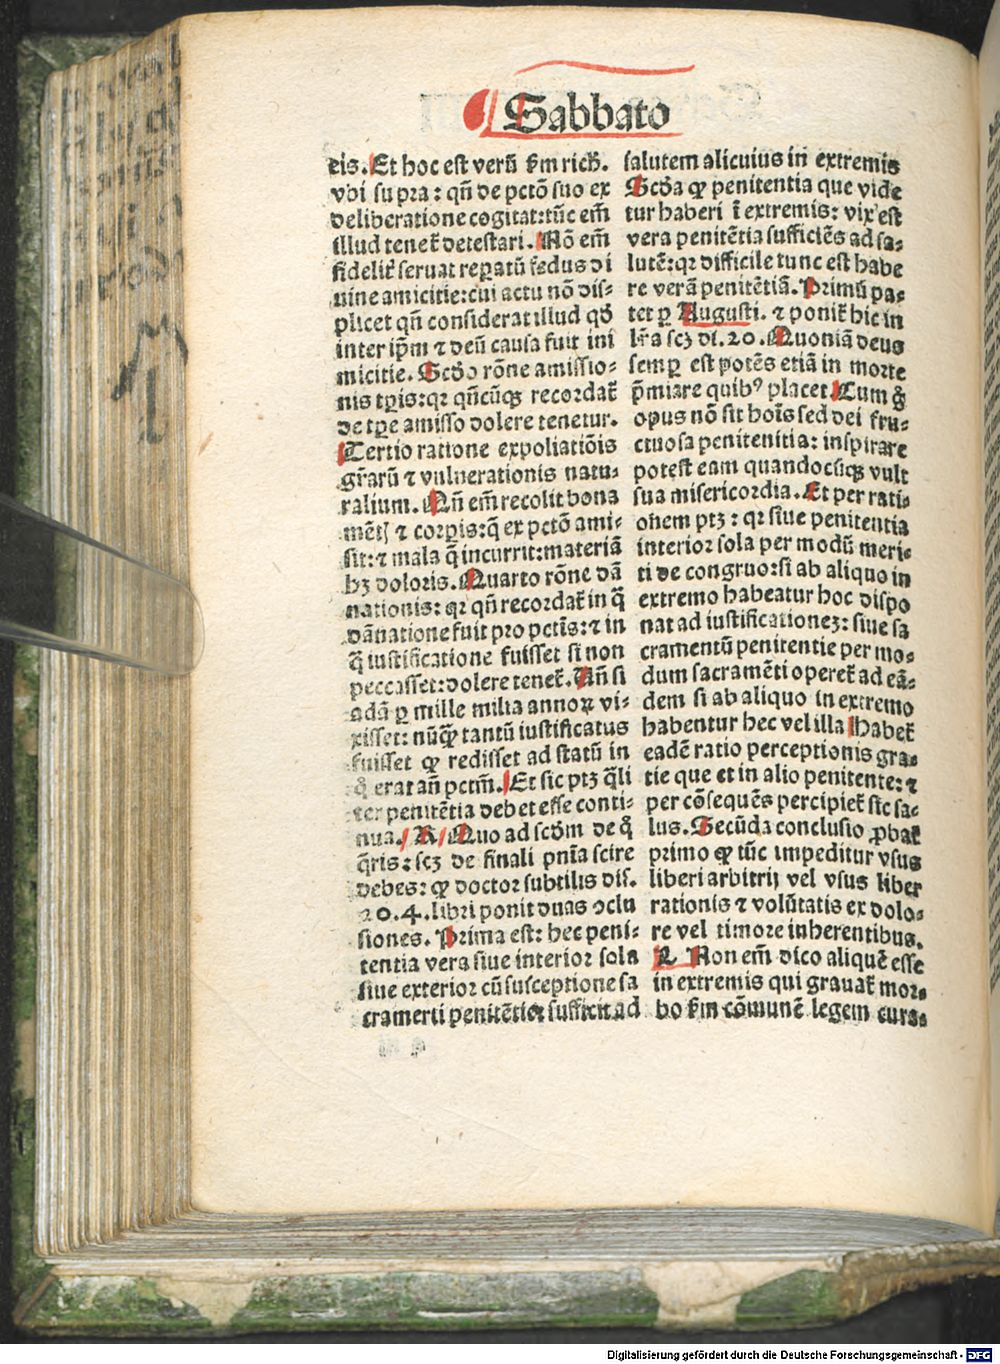 Sabbato
cis. Et hoc est verū s̄m rich̄.
vbi supra: qn̄ de pctō suo ex
deliberatione cogitat: tūc em̄
illud tenet̄ detestari. Nō em̄
fidelit̄ seruat reꝑatū fedus di
uine amicitie: cui actu nō dis-
plicet qn̄ considerat illud qđ
inter ip̄m ⁊ deū causa fuit ini
micitie. Scđo rōne amissio-
nis tꝑis: qꝛ qn̄cūqꝫ recordat̄
de tꝑe amisso dolere tenetur.
Tertio ratione expoliatiōis
gr̄arū ⁊ vulnerationis natu-
ralium. Qn̄ em̄ recolit bona
mētꝭ ⁊ corꝑis: q̄ ex pctō ami-
sit: ⁊ mala q̄ incurrit: materiā
hꝫ doloris. Quarto rōne dā
nationis: qꝛ qn̄ recordat̄ in q̄
dānatione fuit pro pctīs: ⁊ in
q̄ iustificatione fuisset si non
peccasset: dolere tenet̄. Un̄ si
adā ꝑ mille milia annoꝝ vi-
xisset: nūqꝫ̄ tantū iustificatus
fuisset ꝙ redisset ad statū in
q̊ erat an̄ pctm̄. Et sic ptꝫ q̄li
ter penitētia debet esse conti-
nua. R̄ Quo ad scđm de q̊
q̄ris: scꝫ de finali pn̄ia scire
debes: ꝙ doctor subtilis dis.
20.4. libri ponit duas ꝯclu
siones. Prima est: hec peni-
tentia vera siue interior sola
siue exterior cū susceptione sa
cramenti penitētie sufficit ad
salutem alicuius in extremis
Scđa ꝙ penitentia que vide
tur haberi ī extremis: vix est
vera penitētia sufficiēs ad sa-
lutē: qꝛ difficile tunc est habe
re verā penitētiā. Primū pa-
tet ꝑ Augusti. ⁊ ponit̄ hic in
lr̄a scꝫ di. 20. Quoniā deus
semꝑ est potēs etiā in morte
p̄miare quibꝰ placet. Cum g̊
opus nō sit hoīs sed dei fru-
ctuosa penitenitia: inspirare
potest eam quandocūqꝫ vult
sua misericordia. Et per rati-
onem ptꝫ: qꝛ siue penitentia
interior sola per modū meri-
ti de congruo: si ab aliquo in
extremo habeatur hoc dispo
nat ad iustificationeꝫ: siue sa
cramentū penitentie per mo-
dum sacramēti operet̄ ad eā-
dem si ab aliquo in extremo
habentur hec vel illa Habet̄
eadē ratio perceptionis gra-
tie que et in alio penitente: ⁊
per cōsequēs percipiet̄ sic sa-
lus. Secūda conclusio ꝓbat̄
primo ꝙ tūc impeditur vsus
liberi arbitrij vel vsus liber
rationis ⁊ volūtatis ex dolo-
re vel timore inherentibus.
R. Non em̄ dico aliquē esse
in extremis qui grauat̄ mor-
bo s̄m cōmunē legem cura-
Digitalisierung gefördert durch die Deutsche Forschungsgemeinschaft - DFG